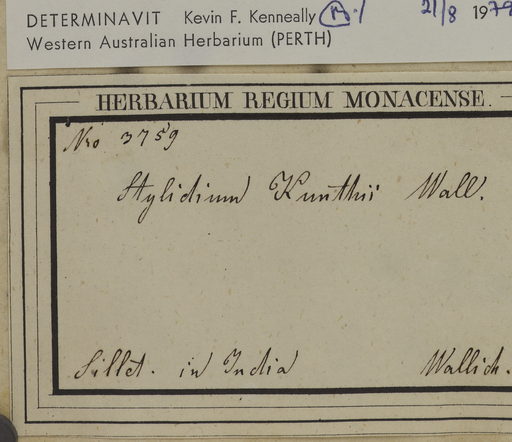 DETERMINAVIT Kevin F. Kenneally
21/8 1979
Western Australian Herbarium (PERTH)
HERBARIUM REGIUM MONACENSE.
Nro 3759
Stylidium Kunthii Wall.
Sillet. in India Wallich.